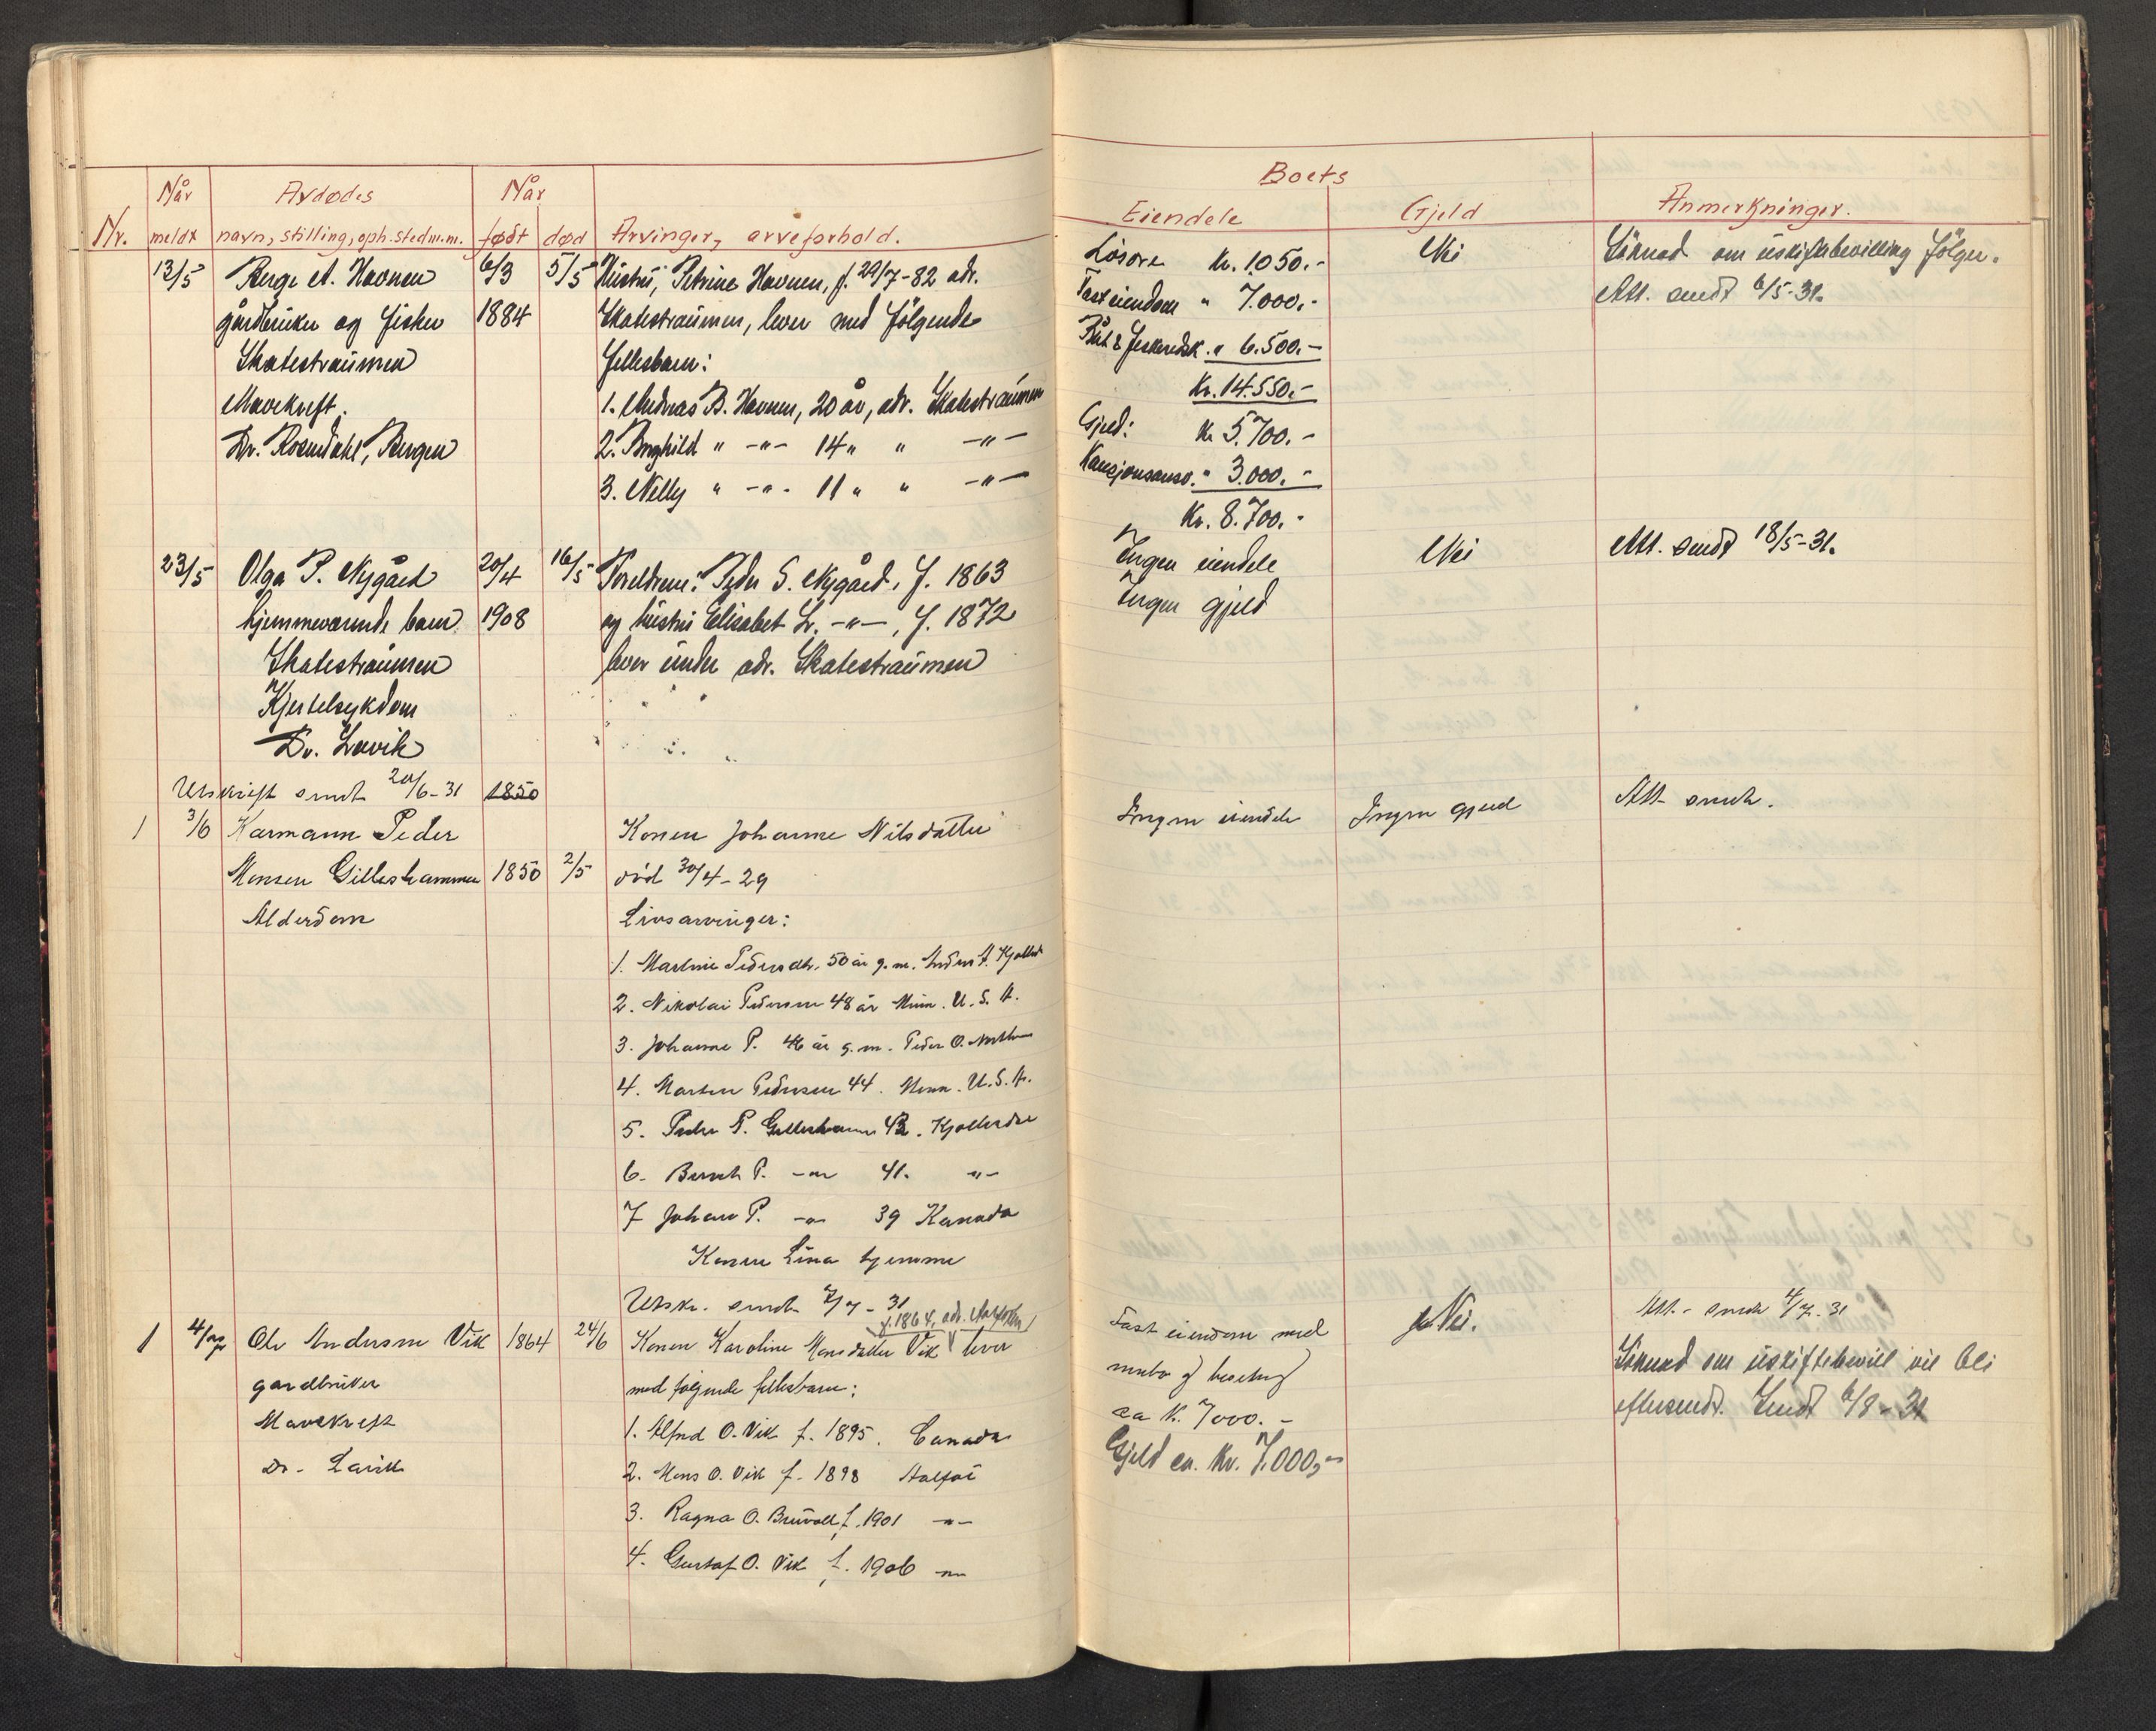 Når Avdødes Når
Nr. meldt navn, stilling, oph.sted m.m. født død Arvinger, arveforhold.
13/5 Berge A. Havnen 6/3 5/5 Hustru, Petrine Havnen, f. 29/7-82 adr.
gårdbruker og fisker 1884 Skatestraumen, lever med følgende
Skatestraumen fellesbarn:
Mavekreft. 1. Andreas B. Havnen, 20 år, adr. Skatestraumen
Dr. Rosendahl, Bergen 2. Borghild " -"- 14 " " -"-
3. Nelly " -"- 11 " " -"-
23/5 Olga P. Nygård 20/4 16/5 Foreldrene: Peder S. Nygård, f. 1863
hjemmeværende barn 1908 og hustru Elisabet L. -"-, f. 1872
Skatestraumen lever under adr. Skatestraumen
Kjertelsykdom
Dr. Lavik
Utskrift sendt 20/6-31 1850
1 3/6 Karmann Peder Konen Johanne Nilsdatter
Monsen Gilleshammer 1850 2/5 død 30/4-29
Alderdom Livsarvinger:
1. Martine Pedersdtr. 50 år g.m. Anders A.
2. Nikolai Pedersen 48 år Minn. U.S.A.
3. Johanne P. 46 år g.m. Peder O.
4. Martin Pedersen 44. Minn. U.S.A.
5. Peder P. Gilleshammer 42.
6. P. -"- 41. -"-
7 Johan P. -"- 39 Kanada
Konen Lina hjemme
Utskr. sendt 7/7-31
f. 1864, adr.
1 4/7 Ole Andersen Vik 1864 24/6 Konen Karoline Monsdatter Vik lever
gardbruker med følgende fellesbarn:
Mavekreft 1. Alfred O. Vik f. 1895. Canada
Dr. Lavik 2. Mons O. Vik f. 1898 Aalfot
3. Ragna O. f. 1901 -"-
4. Gustaf O. Vik f. 1906 -"-
Boets
Eiendele Gjeld Anmerkninger.
Løsøre kr. 1050.- Nei Søknad om uskiftebevilling følger.
Fast eiendom " 7.000.- Att. sendt 6/5-31.
Båt & fiskeredsk. " 6.500.-
Kr. 14.550.-
Gjeld: kr 5.700.-
Kausjonsansv. " 3.000.-
Kr. 8.700.-
Ingen eiendele Nei Att. sendt 18/5-31.
Ingen gjeld
Ingen eiendele Ingen gjeld Att sendt.
Fast eiendom med Nei. Att. sendt 4/7-31
innbo og besetng Søknad om uskiftebevill vil bli
ca kr. 7000.- eftersendt. Sendt 6/8-31
Gjeld ca. kr. 7.000,-